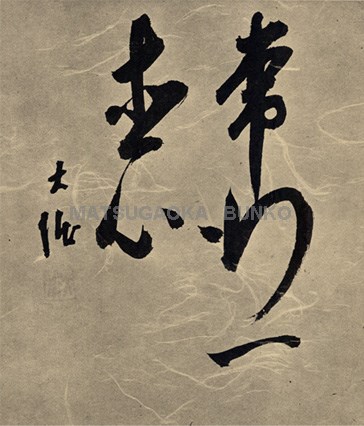 常行一
直心
大拙
MATSUGAOKA BUNKO